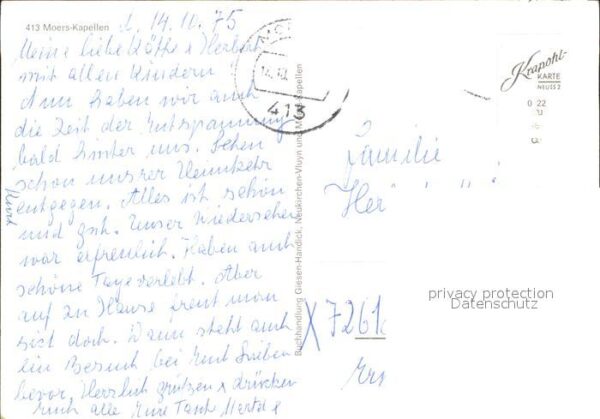 413 Moers-Kapellen
d. 14.10.75
Meine liebe Käthe & Herbert
mit allen Kindern!
Nun haben wir auch
die Zeit der Entspannung
bald hinter uns. Sehen
schon unsrer Heimkehr
entgegen. Alles ist schön
und gut. Unser Wiedersehen
war erfreulich. Haben auch
schöne Tage verlebt. Aber
auf zu Hause freut man
sich doch. Dann steht auch
ein Besuch bei Euch Lieben
bevor. Herzlich grüßen & drücken
Euch alle Eure Tante Herta &
Kurt
Buchhandlung Giesen-Handick, Neukirchen-Vluyn und Moers-Kapellen
413
Krapohl-
KARTE
NEUSS 2
0 22
Familie
Her
privacy protection
Datenschutz
X 7261